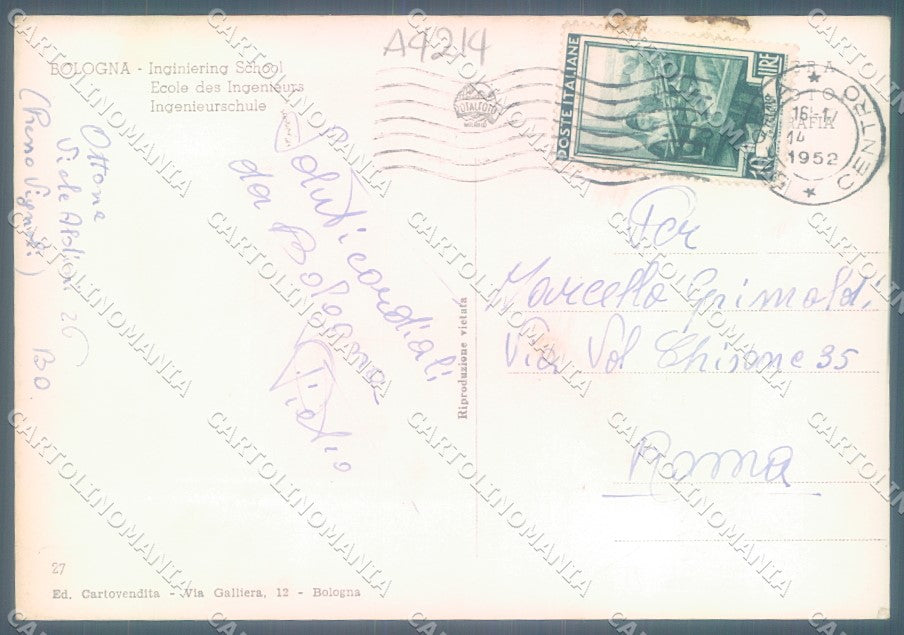 A4214
BOLOGNA - Inginiering School
Ecole des Ingenieurs
Ingenieurschule
POSTE ITALIANE
LIRE
CENTRO
1952
Saluti cordiali
da Bologna
Pietro
Ottone
Viale Aldini 26
BO.
(Reno Vignoli)
Per
Marcello Grimaldi
Via Val Chisone 35
Roma
Riproduzione vietata
27
Ed. Cartovendita - Via Galliera, 12 - Bologna
CARTOLINOMANIA